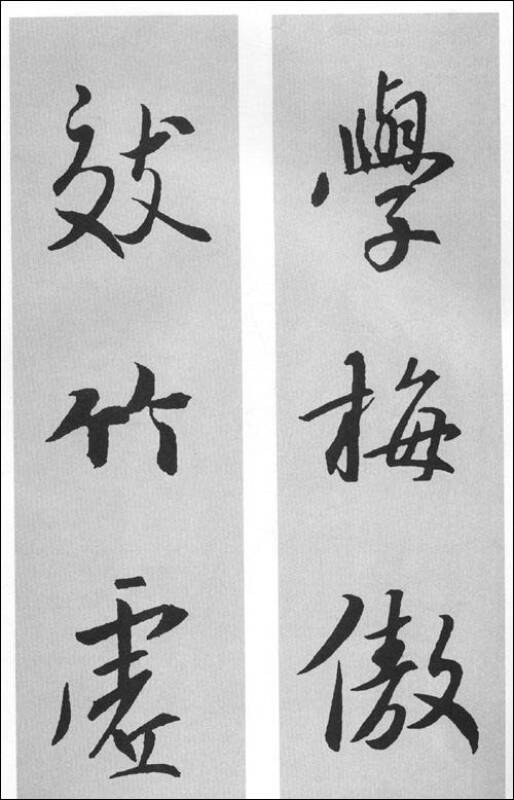 學梅傲
效竹虛